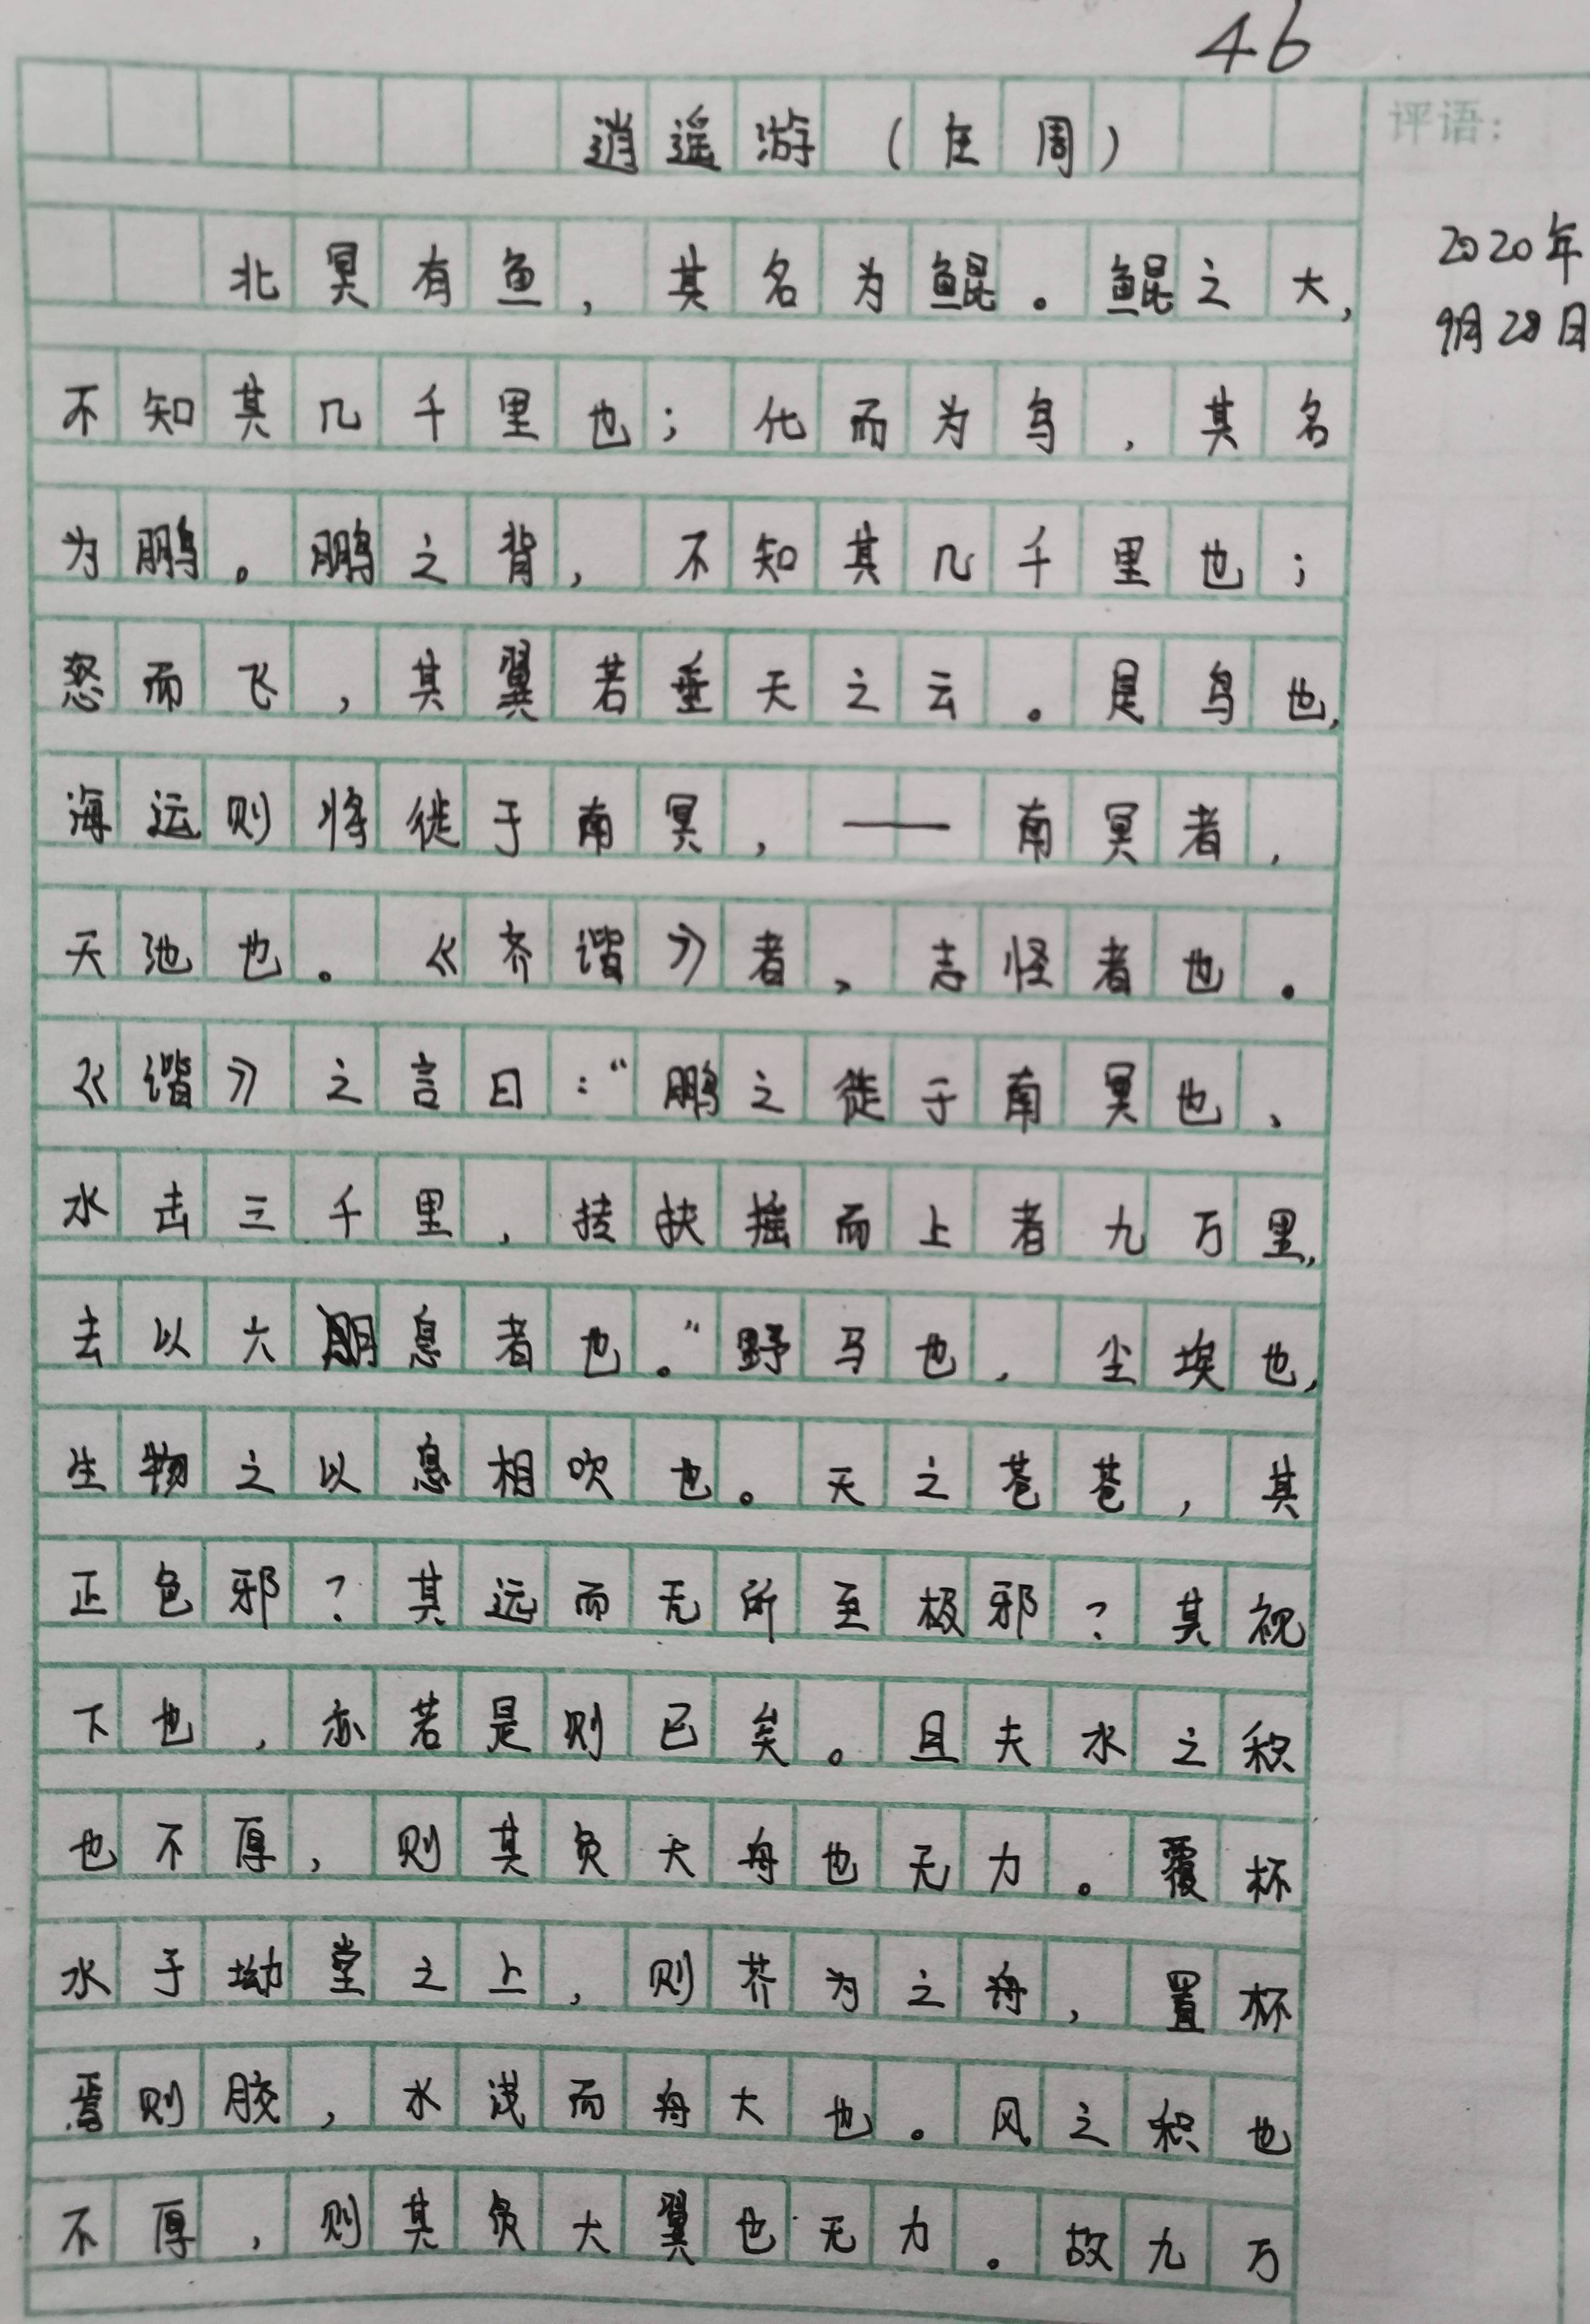 46
逍遥游(庄周)
评语:
2020年
9月28日
北冥有鱼,其名为鲲。鲲之大,
不知其几千里也;化而为鸟,其名
为鹏。鹏之背,不知其几千里也;
怒而飞,其翼若垂天之云。是鸟也,
海运则将徙于南冥,——南冥者,
天池也。《齐谐》者,志怪者也。
《谐》之言曰:“鹏之徙于南冥也、
水击三千里,抟扶摇而上者九万里,
去以六 息者也。”野马也,尘埃也,
生物之以息相吹也。天之苍苍,其
正色邪?其远而无所至极邪?其视
下也,亦若是则已矣。且夫水之积
也不厚,则其负大舟也无力。覆杯
水于坳堂之上,则芥为之舟,置杯
焉则胶,水浅而舟大也。风之积也
不厚,则其负大翼也无力。故九万